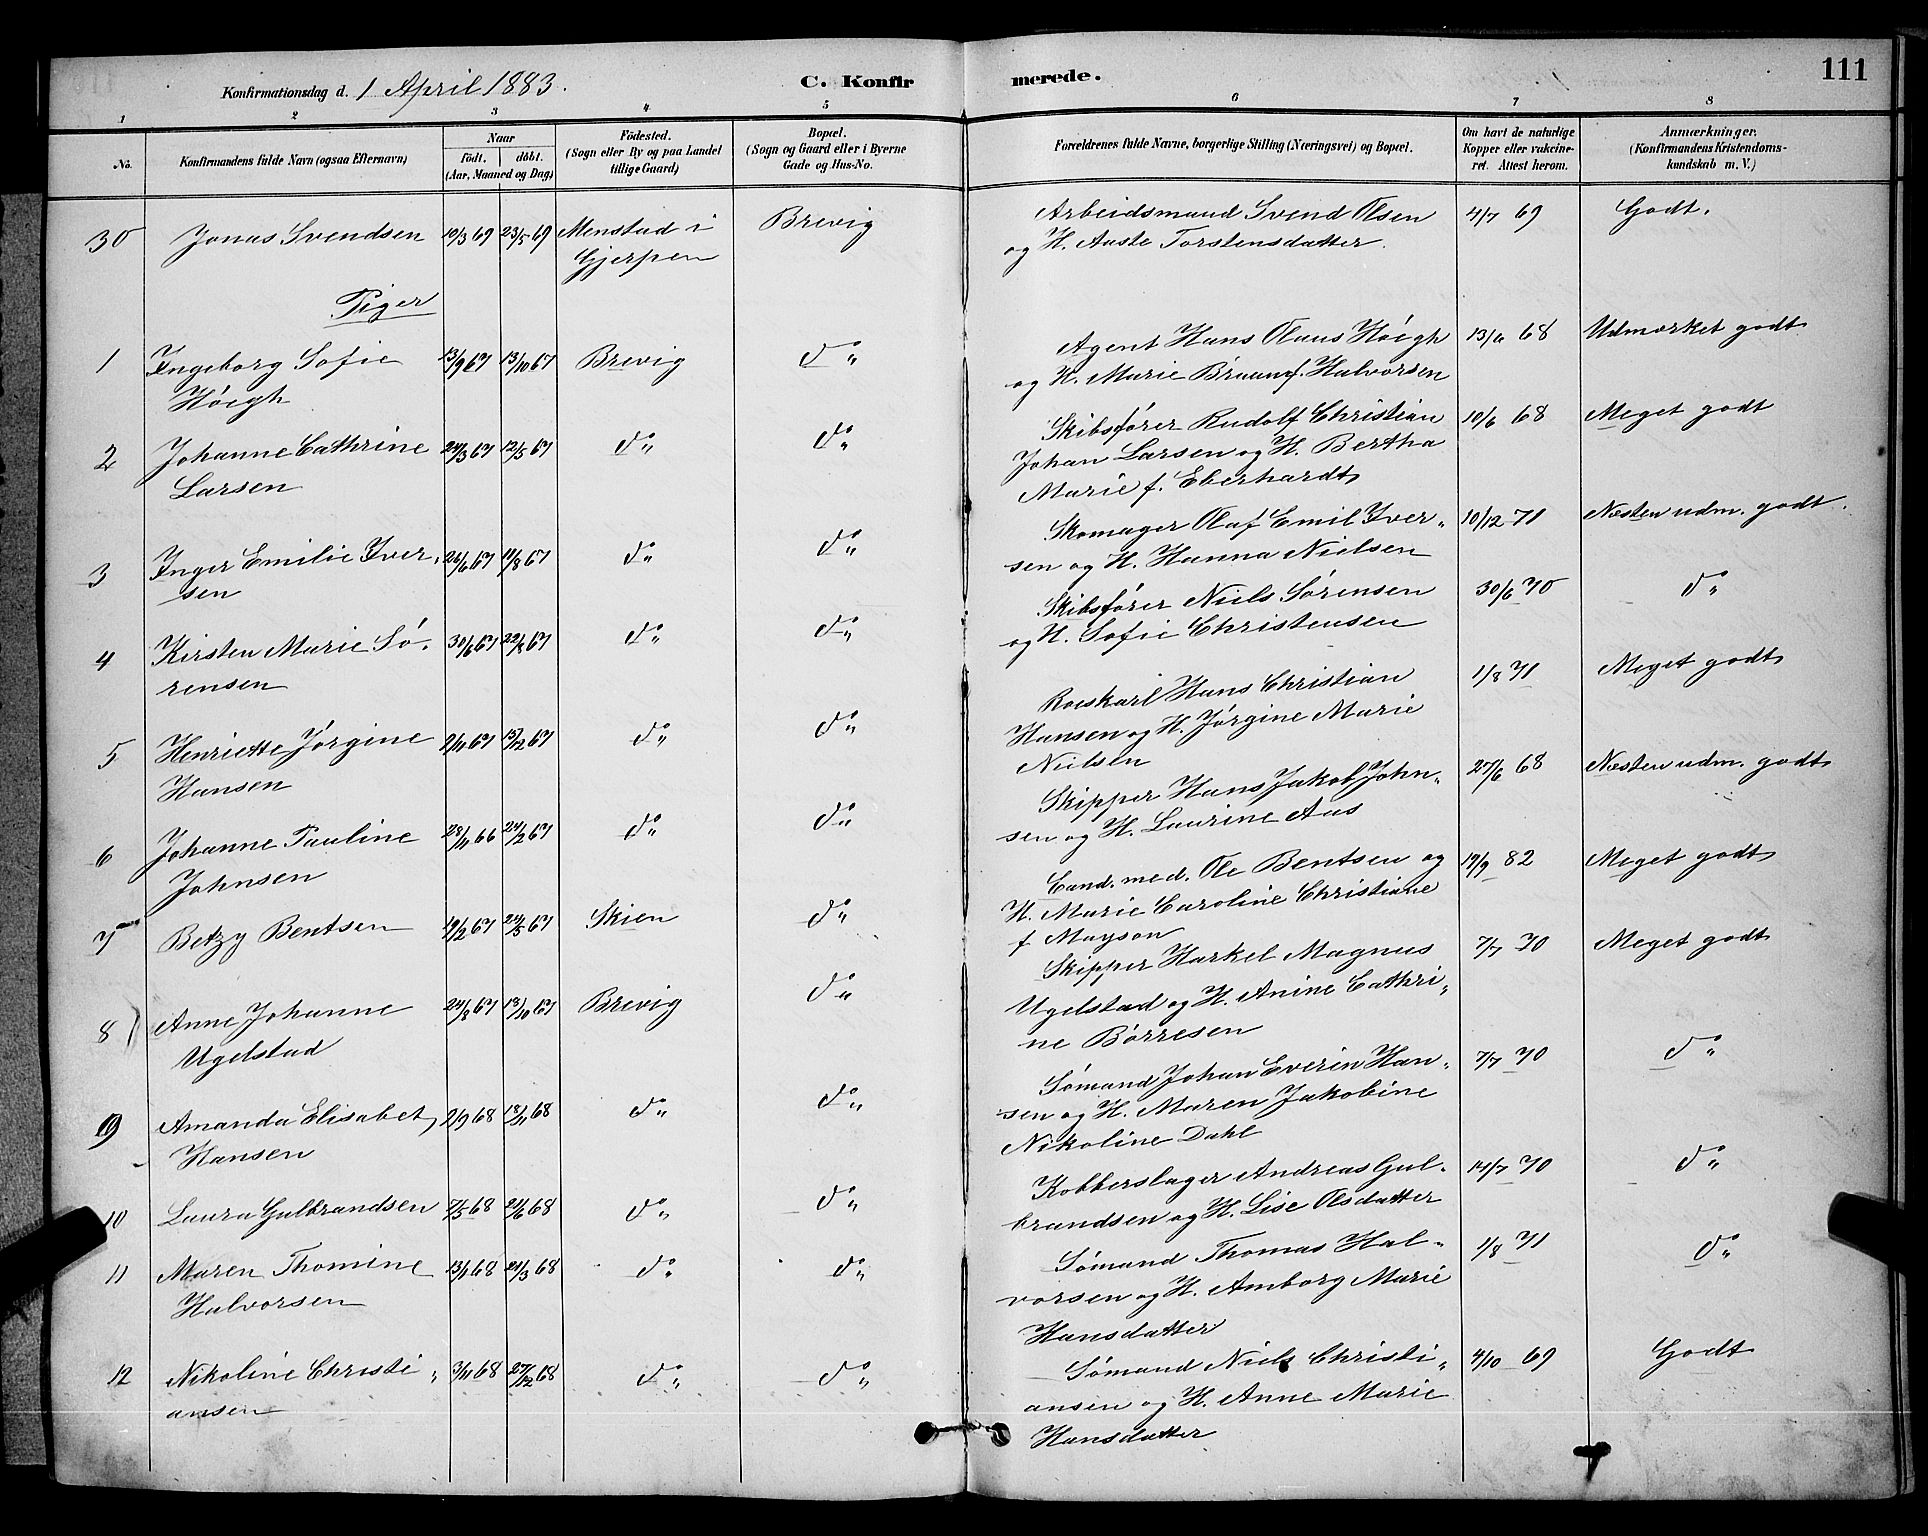 111
Konfirmationsdag d. 1 April 1883.
C. Konfirmerede.
1 2 3 4 5 6 7 8
No.
Konfirmandens fulde Navn (ogsaa Efternavn)
Naar
födt. döbt.
(Aar, Maaned og Dag)
Födested.
(Sogn eller By og paa Landet
tillige Gaard)
Bopæl.
(Sogn og Gaard eller i Byerne
Gade og Hus-No.
Forældrenes fulde Navne, borgerlige Stilling (Næringsvei) og Bopæl.
Om havt de naturlige
Kopper eller vakcine-
ret. Attest herom.
Anmærkninger.
(Konfirmandens Kristendoms-
kundskab m. V.)
30 Jonas Svendsen 10/3 69 23/5 69 Menstad i
Gjerpen
Brevig
Arbeidsmand Svend Olsen
og H. Aaste Torstensdatter.
4/7 69 Godt.
Piger
1 Ingeborg Sofie
Høegh
13/9 67 13/10 67 Brevig do
Agent Hans Olaus Høegh
og H. Marie Bruun f. Halvorsen
13/6 68 Udmærket godt
2 Johanne Cathrine
Larsen
24/3 67 12/5 67 do do
Skibsfører Rudolf Christian
Johan Larsen og H. Bertha
Marie f. Eberhardt
10/6 68 Meget godt
3 Inger Emilie Iver-
sen
26/6 67 11/8 67 do do
Skomager Olaf Emil Iver-
sen og H. Hanna Nielsen
10/12 71 Næsten udm. godt.
4 Kirsten Marie Sø-
rensen
30/6 67 22/8 67 do do
Skibsfører Niels Sørensen
og H. Sofie Christensen
30/6 70 do
5 Henriette Jørgine
Hansen
2/11 67 15/12 67 do do
Roeskarl Hans Christian
Hansen og H. Jørgine Marie
Nielsen
1/8 71 Meget godt
6 Johanne Pauline
Johnsen
28/11 66 24/2 67 do do
Skipper Hans Jakob John-
sen og H. Laurine Aas
27/6 68 Næsten udm. godt
7 Betzy Bentsen 19/2 67 24/5 67 Skien do
Cand. med. Ole Bentsen og
H. Marie Caroline Christiane
f Mayson
19/9 82 Meget godt
8 Anne Johanne
Ugelstad
24/8 67 13/10 67 Brevig do
Skipper Harkel Magnus
Ugelstad og H. Anine Cathri-
ne Børresen
7/7 70 Meget godt
9 Amanda Elisabet
Hansen
2/9 68 18/11 68 do do
Sømand Johan Everin Han-
sen og H. Maren Jakobine
Nikoline Dahl
7/7 70 do
10 Laura Gulbrandsen 7/5 68 21/6 68 do do
Kobberslager Andreas Gul-
brandsen og H. Lise Olsdatter
14/7 70 do
11 Maren Thomine
Halvorsen
13/1 68 21/3 68 do do
Sømand Thomas Hal-
vorsen og H. Amborg Marie
Hansdatter
1/8 71 do
12 Nikoline Christi-
ansen
3/11 68 27/12 68 do do
Sømand Niels Christi-
ansen og H. Anne Marie
Hansdatter
4/10 69 Godt